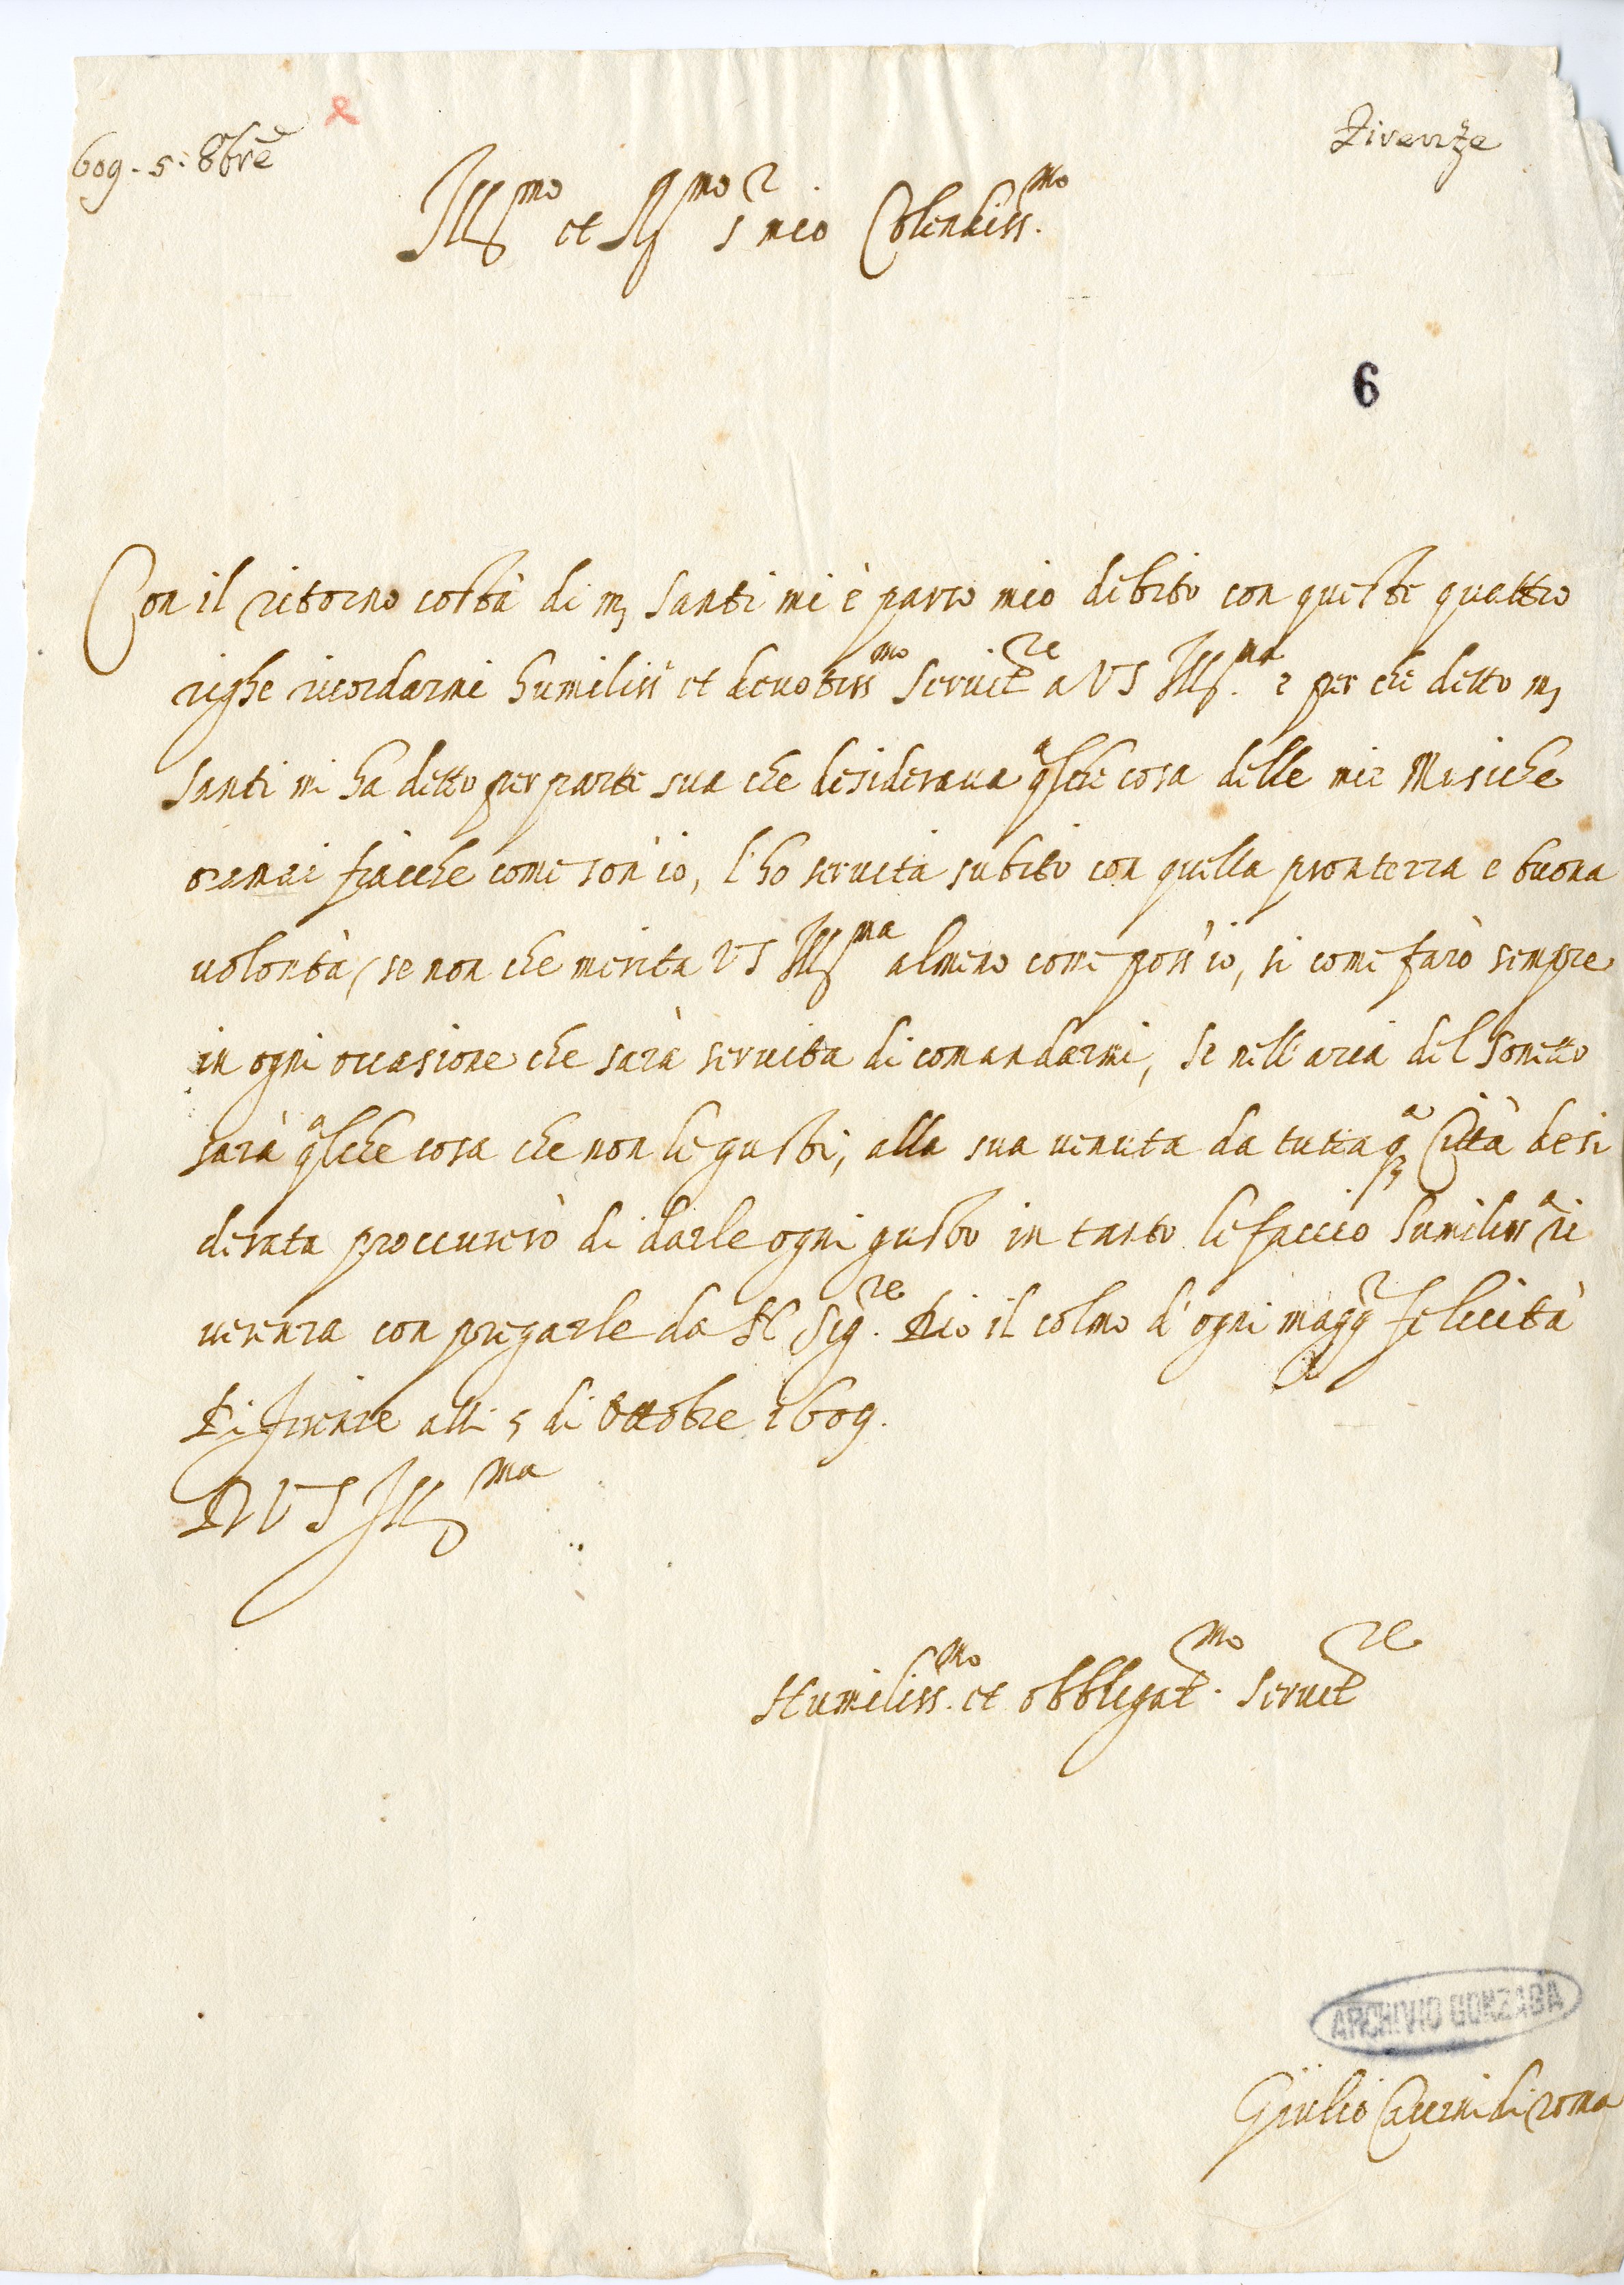 609. 5. 8bre
Firenze
Ill.mo et R.mo S.r mio Colendiss.mo
6
Con il ritorno costà di m. Santi mi è parso mio debito con queste quattro
righe ricordarmi humiliss.o et devotiss.mo Servit.re a VS Ill.ma e per che detto m.
Santi mi ha detto per parte sua che desiderava q.alche cosa delle mie Musiche
oramai fiacche come son io, l'ho servita subito con quella prontezza e buona
volontà, se non che merita VS Ill.ma almeno come poss'io, si come farò sempre
in ogni occasione che sarà servita di comandarmi, se nell'aria del Sonetto
sarà q.alche cosa che non le gusti, alla sua venuta da tutta q.a Città desi
derata proccurerò di darle ogni gusto in tanto le faccio humiliss.a ri
verenza con pregarle da N. Sig.re Dio il colmo d'ogni magg.r felicità
Di firenze alli 5 di Ottobre 1609.
D VS Ill.ma
Humiliss.mo et obbligat.mo Servit.re
ARCHIVIO GONZAGA
Giulio Caccini di roma